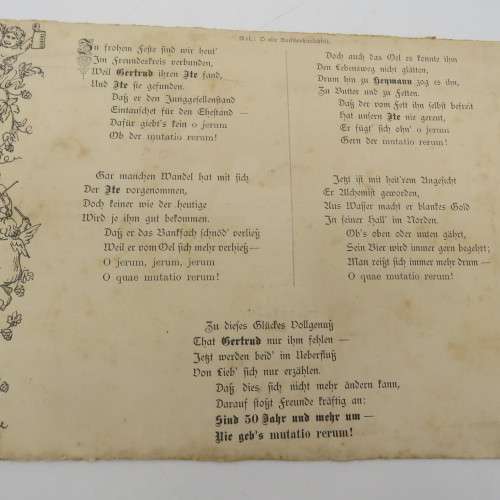 Mel.: O alte Burschenherrlichkeit.
In frohem Feste sind wir heut'
Im Freundeskreis verbunden,
Weil Gertrud ihren Ite fand,
Und Ite sie gefunden.
Daß er den Junggesellenstand
Eintauschet für den Ehestand —
Dafür giebt's kein o jerum
Ob der mutatio rerum!
Gar manchen Wandel hat mit sich
Der Ite vorgenommen,
Doch keiner wie der heutige
Wird je ihm gut bekommen.
Daß er das Bankfach schnöd' verließ
Weil er vom Oel sich mehr verhieß—
O jerum, jerum, jerum
O quae mutatio rerum!
Doch auch das Oel es konnte ihm
Den Lebensweg nicht glätten,
Drum hin zu Heymann zog es ihn,
Zu Butter und zu Fetten.
Daß der vom Fett ihn selbst befreit
Hat unsern Ite nie gereut,
Er fügt' sich ohn' o jerum
Gern der mutatio rerum!
Jetzt ist mit heit'rem Angesicht
Er Alchimist geworden,
Aus Wasser macht er blankes Gold
In seiner Hall' im Norden.
Ob's oben oder unten gährt,
Sein Bier wird immer gern begehrt;
Man reißt sich immer mehr drum —
O quae mutatio rerum!
Zu dieses Glückes Vollgenuß
That Gertrud nur ihm fehlen —
Jetzt werden beid' im Ueberfluß
Von Lieb' sich nur erzählen.
Daß dies sich nicht mehr ändern kann,
Darauf stoßt Freunde kräftig an:
Sind 50 Jahr und mehr um —
Nie geb's mutatio rerum!